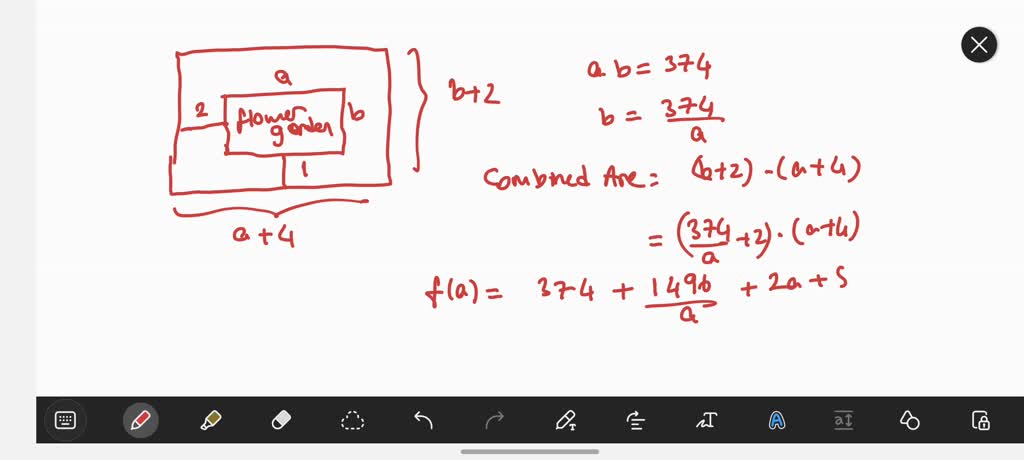 a
2
flower
garden
b
1
b+2
a+4
ab = 374
b = 374/a
Combined Are = (b+2) - (a+4)
= (374/a +2) · (a+4)
f(a) = 374 + 1496/a + 2a + S